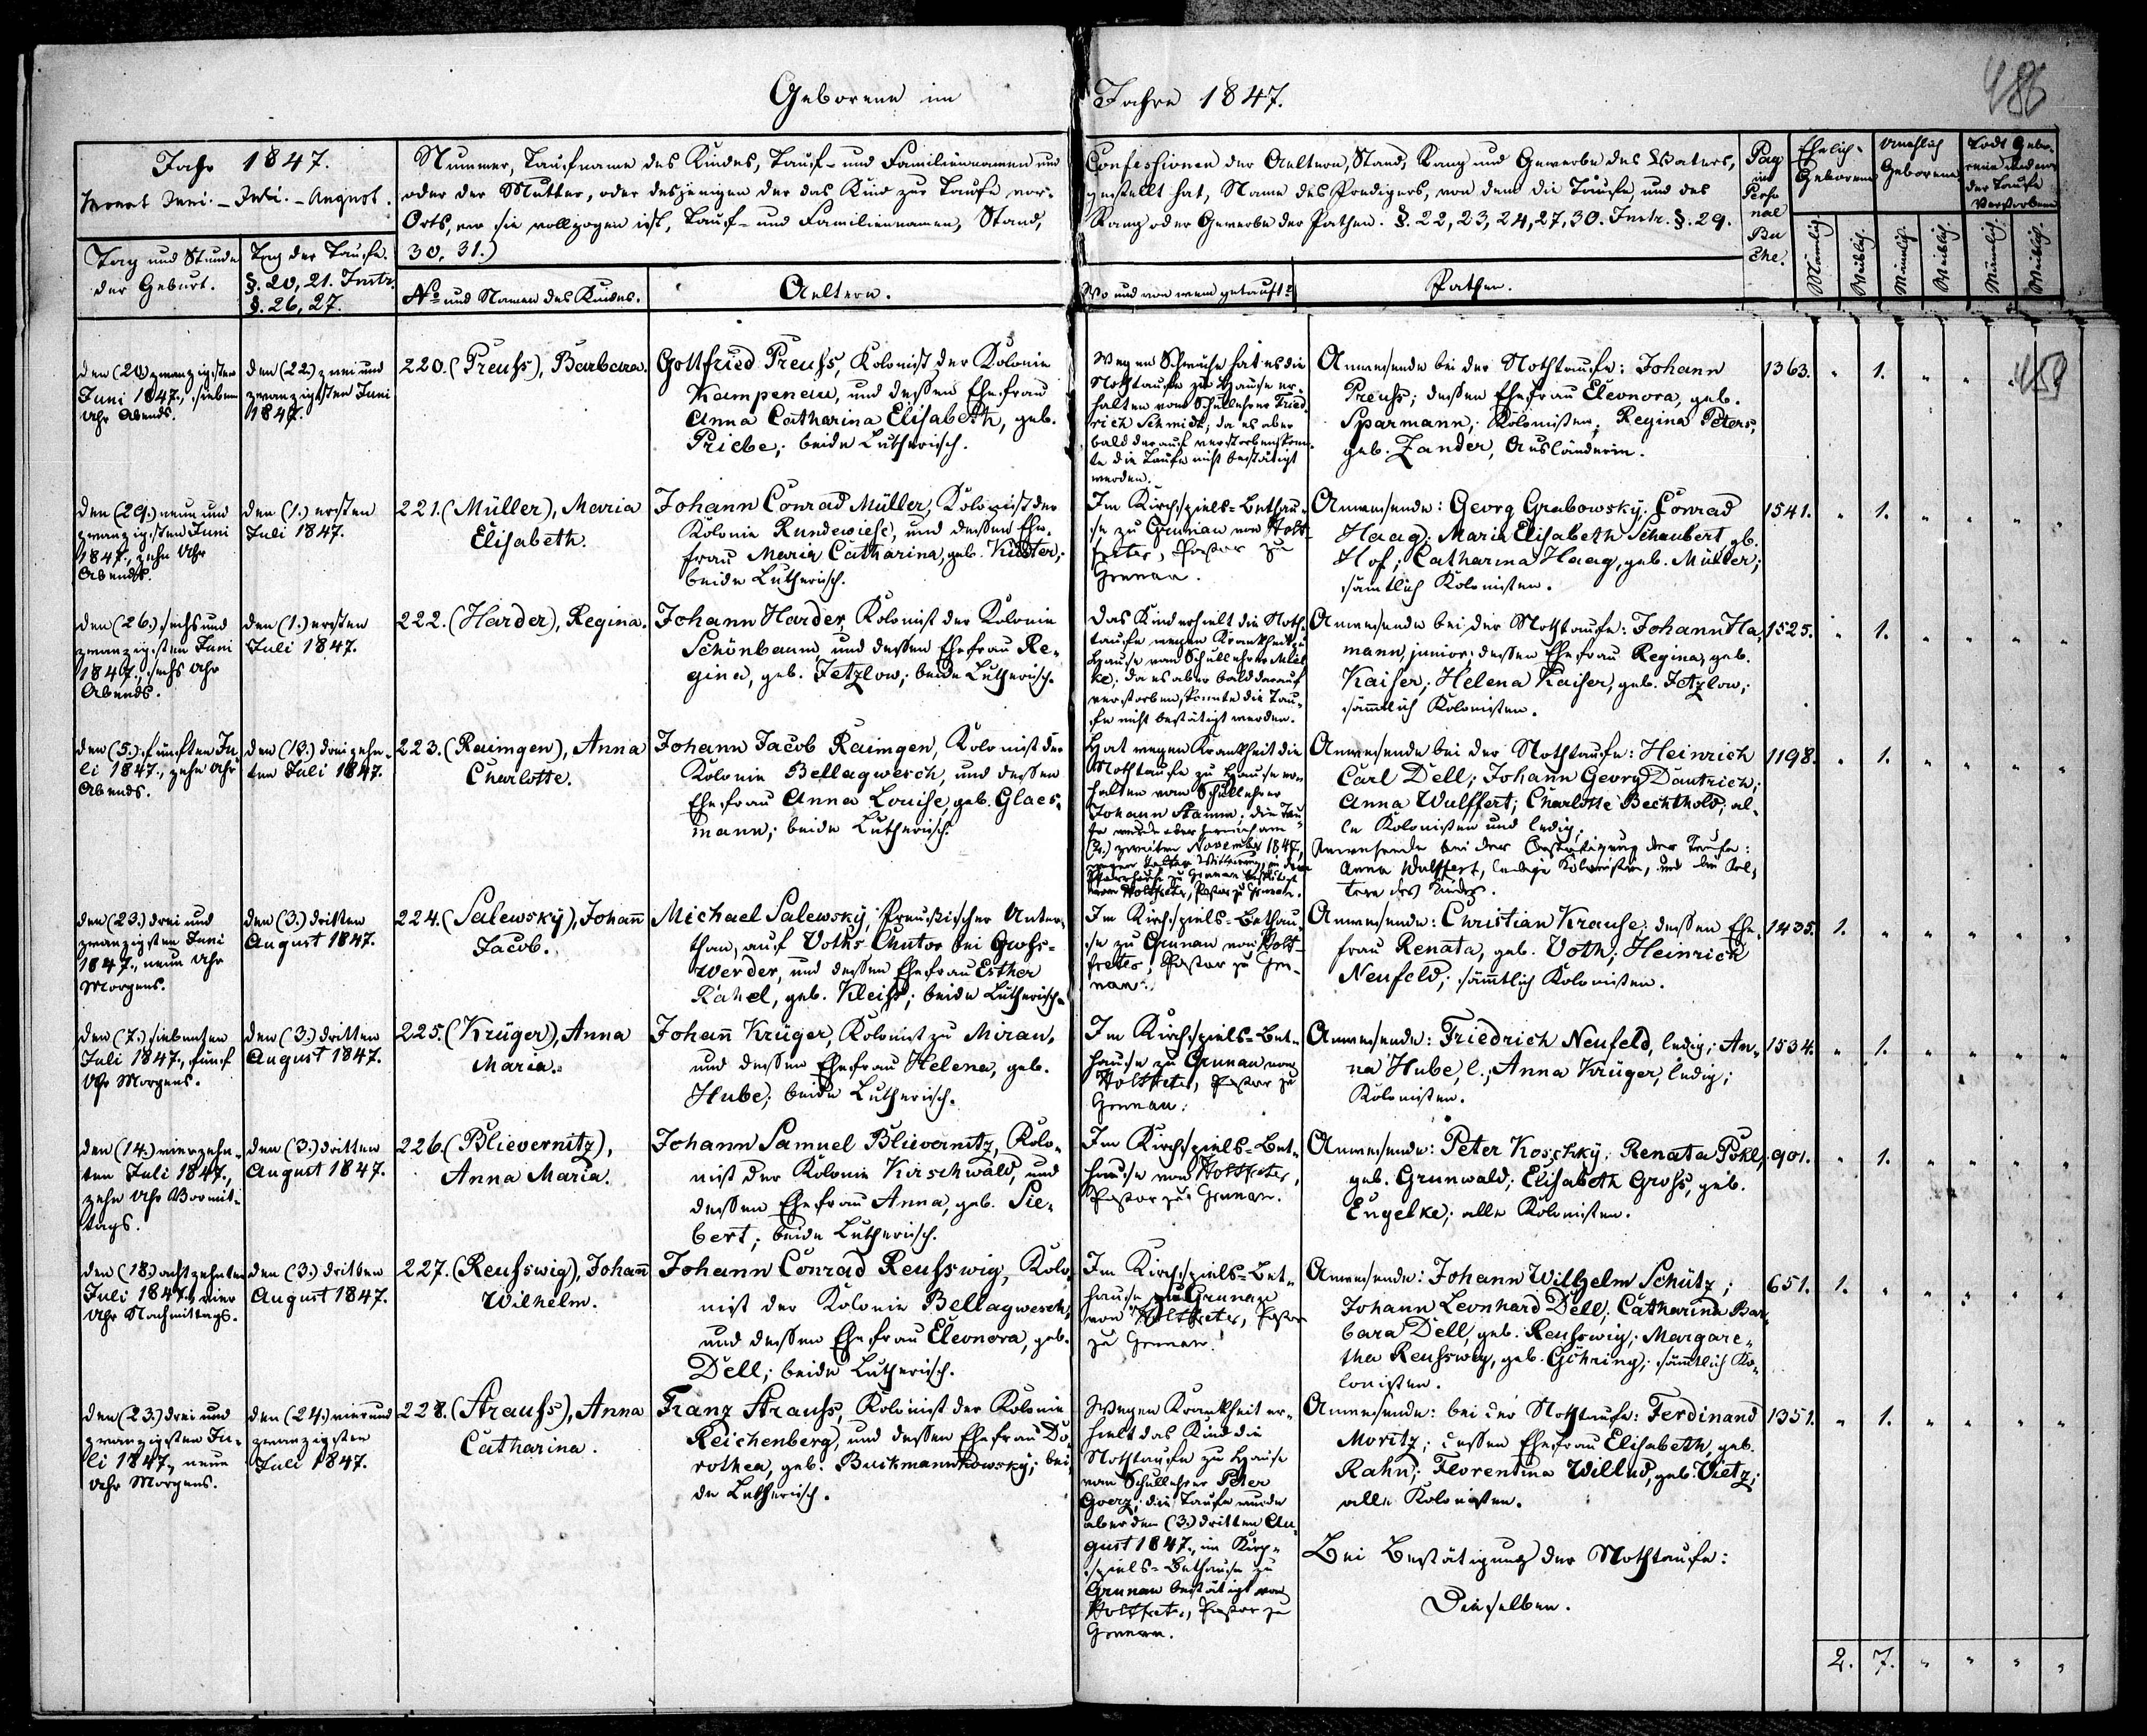 Geborene im Jahre 1847.
486
Jahr 1847.
Monat Juni. - Juli. - August.
Tag und Stunde
der Geburt.
Tag der Taufe.
§. 20, 21. Instr.
§. 26, 27.
Nummer, Taufname des Kindes, Tauf- und Familiennamen und
oder der Mutter, oder desjenigen der das Kind zur Taufe vor-
Orts, wo sie vollzogen ist, Tauf- und Familiennamen, Stand,
30. 31.)
No und Namen des Kindes.
Aeltern.
Confessionen der Aeltern, Stand, Rang und Gewerbe des Vaters,
gestellt hat, Name des Predigers, von dem die Taufe, und des
Rang oder Gewerbe der Pathen. §. 22, 23, 24, 27, 30. Instr. §. 29.
Wo und von wem getauft?
Pathen.
Pag
im
Perso
nal
Bu
che.
Ehelich
Geborene
Unehlich
Geborene
Todt Gebo-
rene und vor
der Taufe
Verstorbene
Männlich.
Weiblich.
Männlich.
Weiblich.
Männlich.
Weiblich.
den (20) zwanzigsten
Juni 1847., sieben
Uhr Abends.
den (22.) zwei und
zwanzigsten Juni
1847.
220. (Preuss), Barbara.
Gottfried Preuss, Kolonist der Kolonie
Kampenau, und dessen Ehefrau
Anna Catharina Elisabeth, geb.
Priebe; beide Lutherisch.
Wegen Schwäche hat es die
Nothtaufe zu Hause er-
halten vom Schullehrer Fried-
rich Schmidt; da es aber
bald darauf verstorben, konn-
te die Taufe nicht bestätigt
werden.
Anwesende bei der Nothtaufe: Johann
Preuss; dessen Ehefrau Eleonora, geb.
Sparmann, Kolonisten; Regina Peters,
geb. Zander, Ausländerin.
1363. " 1. " "
459
den (29.) neun und
zwanzigsten Juni
1847., zehn Uhr
Abends.
den (1.) ersten
Juli 1847.
221. (Müller), Maria
Elisabeth.
Johann Conrad Müller, Kolonist der
Kolonie Rundewiese, und dessen Ehe-
frau Maria Catharina, geb. Küster;
beide Lutherisch.
Im Kirchspiels-Bethau-
se zu Grunau von Holt-
freter, Pastor zu
Grunau.
Anwesende: Georg Grabowsky; Conrad
Haag; Maria Elisabeth Schaubert, gb.
Hof; Catharina Haag, geb. Müller;
sämtlich Kolonisten.
1541. " 1. " " " "
den (26.) sechs und
zwanzigsten Juni
1847., sechs Uhr
Abends.
den (1.) ersten
Juli 1847.
222. (Harder), Regina.
Johann Harder, Kolonist der Kolonie
Schönbaum, und dessen Ehefrau Re-
gina, geb. Jetzlow; beide Lutherisch.
Das Kind erhielt die Noth-
taufe wegen Krankheit zu
Hause vom Schullehrer Miel
ke; da es aber bald darauf
verstorben, konnte die Tau-
fe nicht bestätigt werden.
Anwesende bei der Nothtaufe: Johann Ha-
mann, junior; dessen Ehefrau Regina, geb.
Kaiser; Helena Kaiser, geb. Jetzlow;
sämtlich Kolonisten.
1525. " 1. " " " "
den (5.) fünften Ju-
li 1847., zehn Uhr
Abends.
den (13.) dreizehn-
ten Juli 1847.
223. (Raimgen), Anna
Charlotte.
Johann Jacob Raimgen, Kolonist der
Kolonie Bellagwesch, und dessen
Ehefrau Anna Louise, geb. Glaes-
mann; beide Lutherisch.
Hat wegen Krankheit die
Nothtaufe zu Hause er-
halten vom Schullehrer
Johann Stamm; die Tau-
fe wurde aber hernach am
(2.) zweiten November 1847,
wegen kalter Witterung, in dem
Pfarrhause zu Grunau bestätigt
von Holtfreter, Pastor zu Grunau.
Anwesende bei der Nothtaufe: Heinrich
Carl Dell; Johann Georg Dautrich;
Anna Wulffert; Charlotte Bechthold; al-
le Kolonisten und ledig;
Anwesende bei der Bestätigung der Taufe:
Anna Wulffert, ledige Kolonistin, und die Ael-
tern des Kindes.
1198. " 1. " " " "
den (23.) drei und
zwanzigsten Juni
1847., neun Uhr
Morgens.
den (3.) dritten
August 1847.
224. (Salewsky), Johann
Jacob.
Michael Salewsky, Preussischer Unter-
than, auf Voths Chutor bei Gross-
werder, und dessen Ehefrau Esther
Rahel, geb. Kleiss; beide Lutherisch.
Im Kirchspiels-Bethau-
se zu Grunau von Holt-
freter, Pastor zu Gru-
nau.
Anwesende: Christian Krause; dessen Ehe-
frau Renata, geb. Voth; Heinrich
Neufeld; sämtlich Kolonisten.
1435. 1. " " " " "
den (7.) siebenten
Juli 1847., fünf
Uhr Morgens.
den (3.) dritten
August 1847.
225. (Krüger), Anna
Maria.
Johann Krüger, Kolonist zu Mirau,
und dessen Ehefrau Helena, geb.
Hube; beide Lutherisch.
Im Kirchspiels-Bet-
hause zu Grunau von
Holtfreter, Pastor zu
Grunau.
Anwesende: Friedrich Neufeld, ledig; An-
na Hube, l.; Anna Krüger, ledig;
Kolonisten.
1534. " 1. " " " "
den (14.) vierzehn-
ten Juli 1847.,
zehn Uhr Vormit-
tags.
den (3.) dritten
August 1847.
226. (Blievernitz),
Anna Maria.
Johann Samuel Blievernitz, Kolo-
nist der Kolonie Kirschwald, und
dessen Ehefrau Anna, geb. Sie-
bert; beide Lutherisch.
Im Kirchspiels-Bet-
hause von Holtfreter,
Pastor zu Grunau.
Anwesende: Peter Koschky; Renata Pokl,
geb. Grunwald; Elisabeth Gross, geb.
Engelke; alle Kolonisten.
901. " 1. " " " "
den (18.) achtzehnten
Juli 1847., vier
Uhr Nachmittags.
den (3.) dritten
August 1847.
227. (Reusswig), Johann
Wilhelm.
Johann Conrad Reusswig, Kolo-
nist der Kolonie Bellagwesch,
und dessen Ehefrau Eleonora, geb.
Dell; beide Lutherisch.
Im Kirchspiels-Bet-
hause zu Grunau
von Holtfreter, Pastor
zu Grunau.
Anwesende: Johann Wilhelm Schütz;
Johann Leonhard Dell; Catharina Bar-
bara Dell, geb. Reusswig; Margare-
tha Reusswig, geb. Göhring; sämtlich Ko-
lonisten.
651. 1. " " " " "
den (23.) drei und
zwanzigsten Ju-
li 1847., neun
Uhr Morgens.
den (24.) vier und
zwanzigsten
Juli 1847.
228. (Strauss), Anna
Catharina.
Franz Strauss, Kolonist der Kolonie
Reichenberg, und dessen Ehefrau Do-
rothea, geb. Buikmannkowsky; bei-
de Lutherisch.
Wegen Krankheit er-
hielt das Kind die
Nothtaufe zu Hause
vom Schullehrer Peter
Goerz; die Taufe wurde
aber den (3.) dritten Au-
gust 1847., im Kirch-
spiels-Bethause zu
Grunau bestätigt von
Holtfreter, Pastor zu
Grunau.
Anwesende: bei der Nothtaufe: Ferdinand
Moritz; dessen Ehefrau Elisabeth, geb.
Rahn; Florentina Willud, geb. Vietz;
alle Kolonisten.
Bei Bestätigung der Nothtaufe:
Dieselben.
1351. " 1. " " " "
2. 7. " " " "